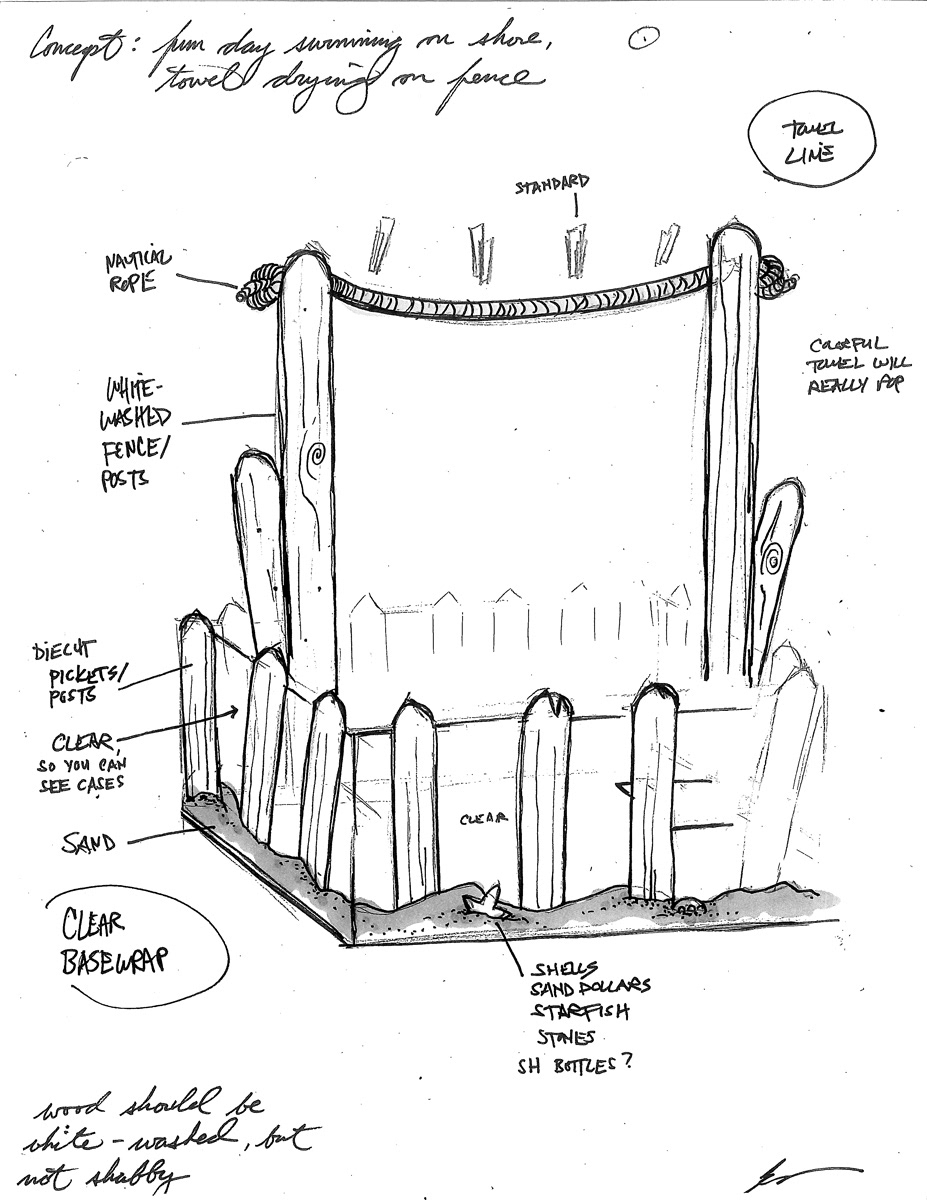 Concept: fun day swimming on shore,
towel drying on fence
TOWEL
LINE
STANDARD
NAUTICAL
ROPE
COLORFUL
TOWEL WILL
REALLY POP
WHITE-
WASHED
FENCE/
POSTS
DIECUT
PICKETS/
POSTS
CLEAR,
SO YOU CAN
SEE CASES
CLEAR
SAND
CLEAR
BASEWRAP
SHELLS
SAND DOLLARS
STARFISH
STONES
SH BOTTLES?
wood should be
white-washed, but
not shabby